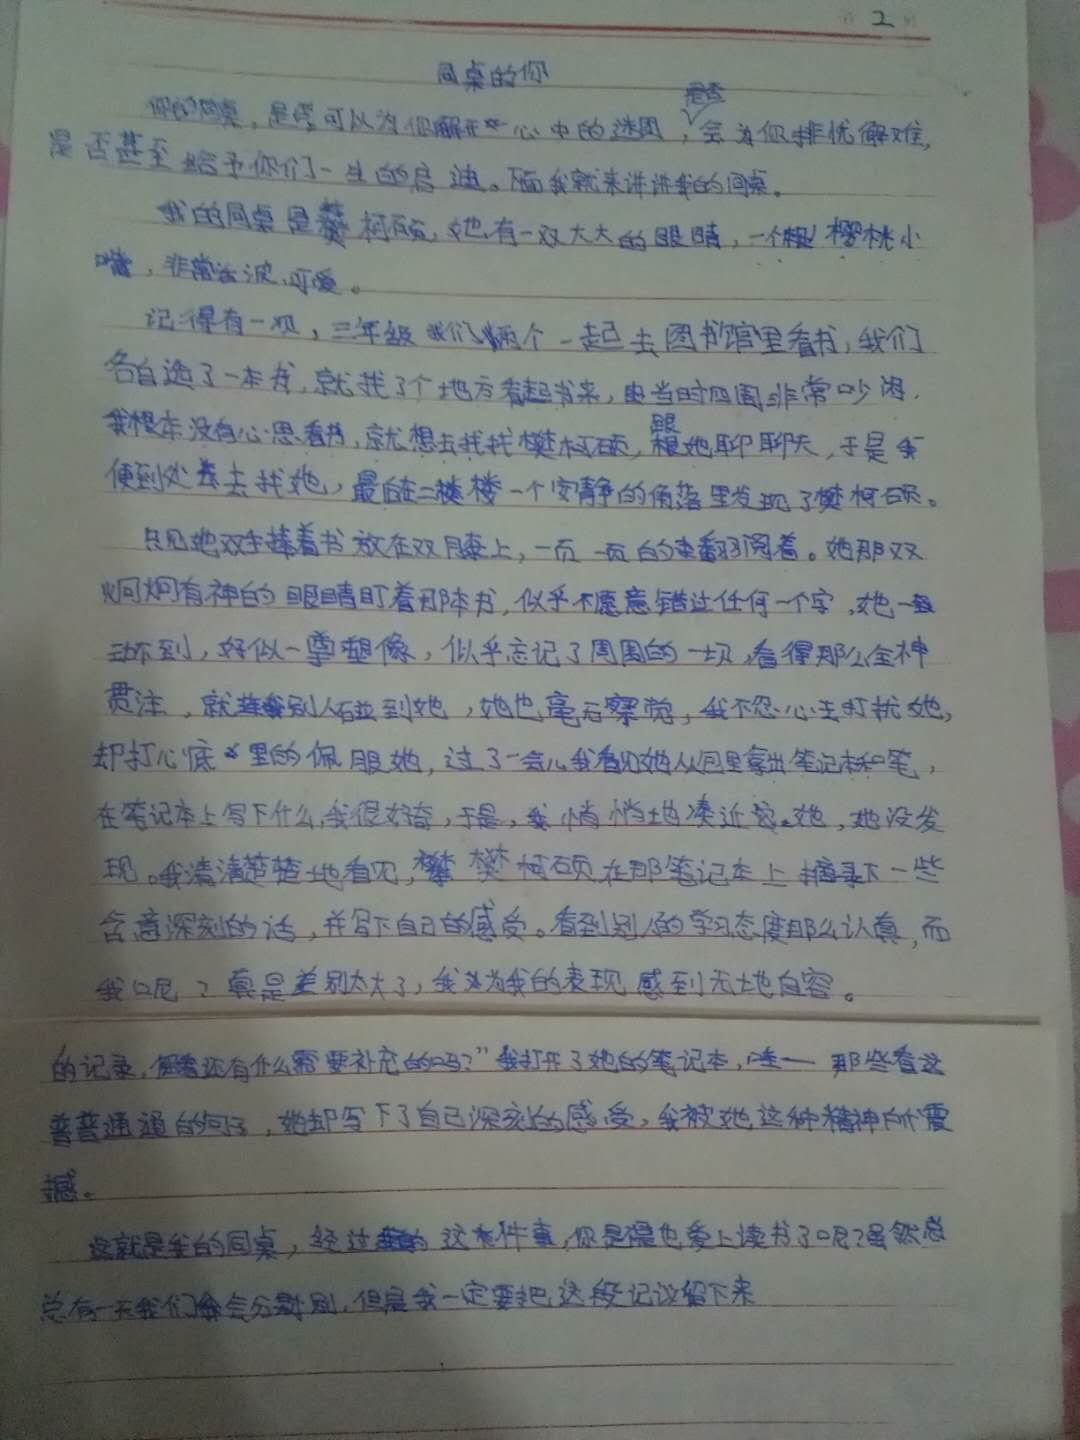 2
同桌的你
是否
你的同桌,是否可以为你解开心中的迷团,会为你排忧解难,
是否甚至给予你们一生的启迪。下面我就来讲讲我的同桌。
我的同桌是樊柯硕,她有一双大大的眼睛,一个樱桃小
嘴,非常活泼、可爱。
记得有一次,三年级我们俩个一起去图书馆里看书,我们
各自选了一本书,就找了个地方看起书来,由当时四周非常吵闹,
跟
我根本没有心思看书,就想去找找樊柯硕,她聊聊天,于是我
便到处去找她,最后在二楼一个安静的角落里发现了樊柯硕。
只见她双手捧着书放在双膝上,一页一页的翻阅着。她那双
炯炯有神的眼睛盯着那本书,似乎不愿意错过任何一个字,她一
动不动,好似一尊塑像,似乎忘记了周围的一切,看得那么全神
贯注,就别人碰到她,她也毫无察觉,我不忍心去打扰她,
却打心底里的佩服她,过了一会儿我看见她从包里拿出笔记本和笔,
在笔记本上写下什么,我很好奇,于是,我悄悄地凑近她,她没发
现。我清清楚楚地看见,樊柯硕在那笔记本上摘录下一些
含意深刻的话,并写下自己的感受。看到别人的学习态度那么认真,而
我呢?真是差别太大了,我为我的表现感到无地自容。
的记录,看还有什么需要补充的吗?”我打开了她的笔记本,哇——那些看这
普普通通的句子,她却写下了自己深刻的感受,我被她这种精神所震
撼。
这就是我的同桌,经过这件事,你是不是也爱上读书了呢?虽然总
总有一天我们会分别,但是我一定要把这段记议留下来